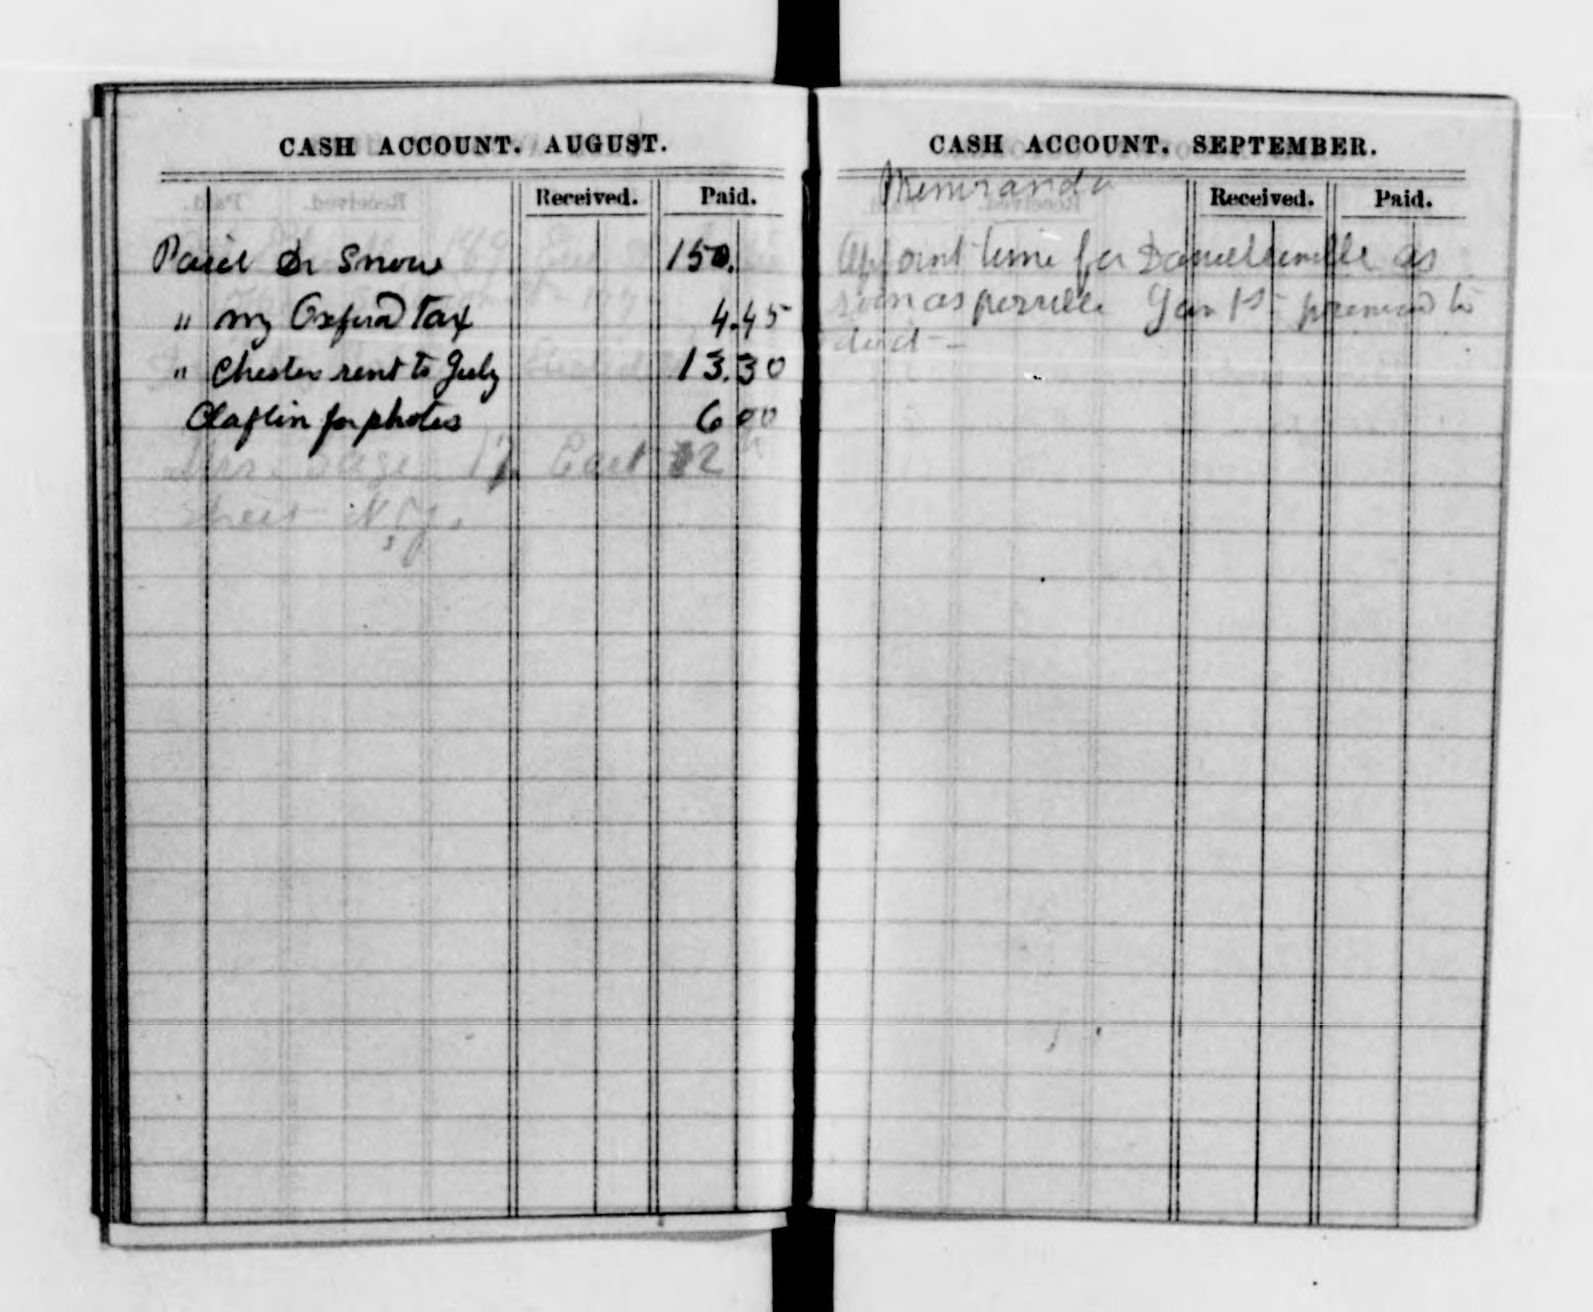 CASH ACCOUNT. AUGUST.
Received. Paid.
Paid Dr Snow 150.
" my Oxford Tax 4.45
" Chester rent to July 13.30
Claflin for photos 6 00
Mrs. Sage 17 East 12th
Street N.Y.
CASH ACCOUNT. SEPTEMBER.
Memoranda
Received. Paid.
Appoint time for Danielsonville as
soon as possible Jan 1st promised to